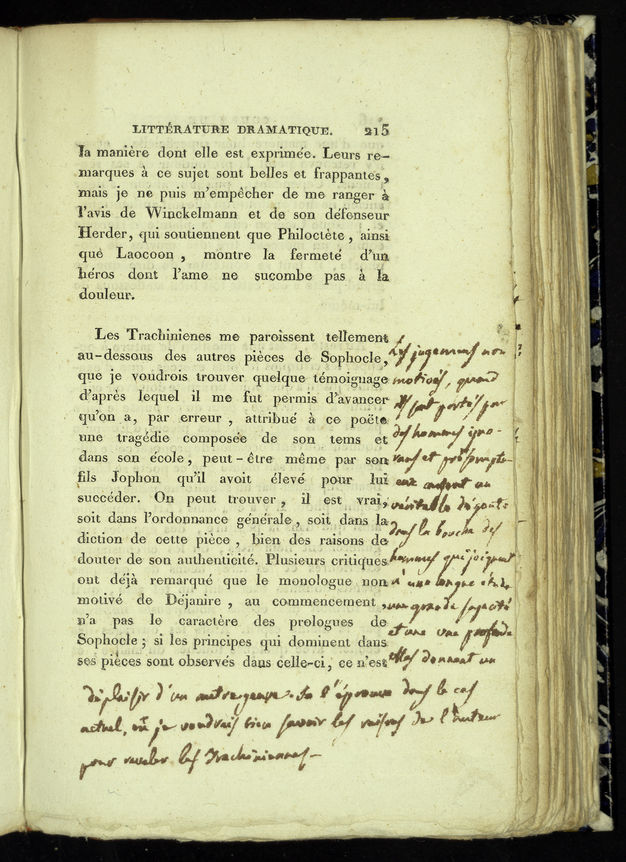 LITTÉRATURE DRAMATIQUE. 215
la manière dont elle est exprimée. Leurs re-
marques à ce sujet sont belles et frappantes,
mais je ne puis m'empêcher de me ranger à
l'avis de Winckelmann et de son défenseur
Herder, qui soutiennent que Philoctète, ainsi
que Laocoon, montre la fermeté d'un
héros dont l'ame ne sucombe pas à la
douleur.
Les Trachinienes me paroissent tellement
au-dessous des autres pièces de Sophocle,
que je voudrois trouver quelque témoignage
d'après lequel il me fut permis d'avancer
qu'on a, par erreur, attribué à ce poëte
une tragédie composée de son tems et
dans son école, peut-être même par son
fils Jophon qu'il avoit élevé pour lui
succéder. On peut trouver, il est vrai,
soit dans l'ordonnance générale, soit dans la
diction de cette pièce, bien des raisons de
douter de son authenticité. Plusieurs critiques
ont déjà remarqué que le monologue non
motivé de Déjanire, au commencement,
n'a pas le caractère des prologues de
Sophocle; si les principes qui dominent dans
ses pièces sont observés dans celle-ci, ce n'est
Les jugemens non
motivés, quand
ils sont portés par
des hommes igno-
rans et présomptu-
eux causent un
véritable dégoût:
dans la bouche des
hommes qui joignent
a une longue étude
une grande sagacité
et une vue profonde
elles donnent un
déplaisir d'un autre genre. Je l'éprouve dans le cas
actuel, où je voudrais bien savoir les raisons de l'auteur
pour ravaler les Trachiniennes—